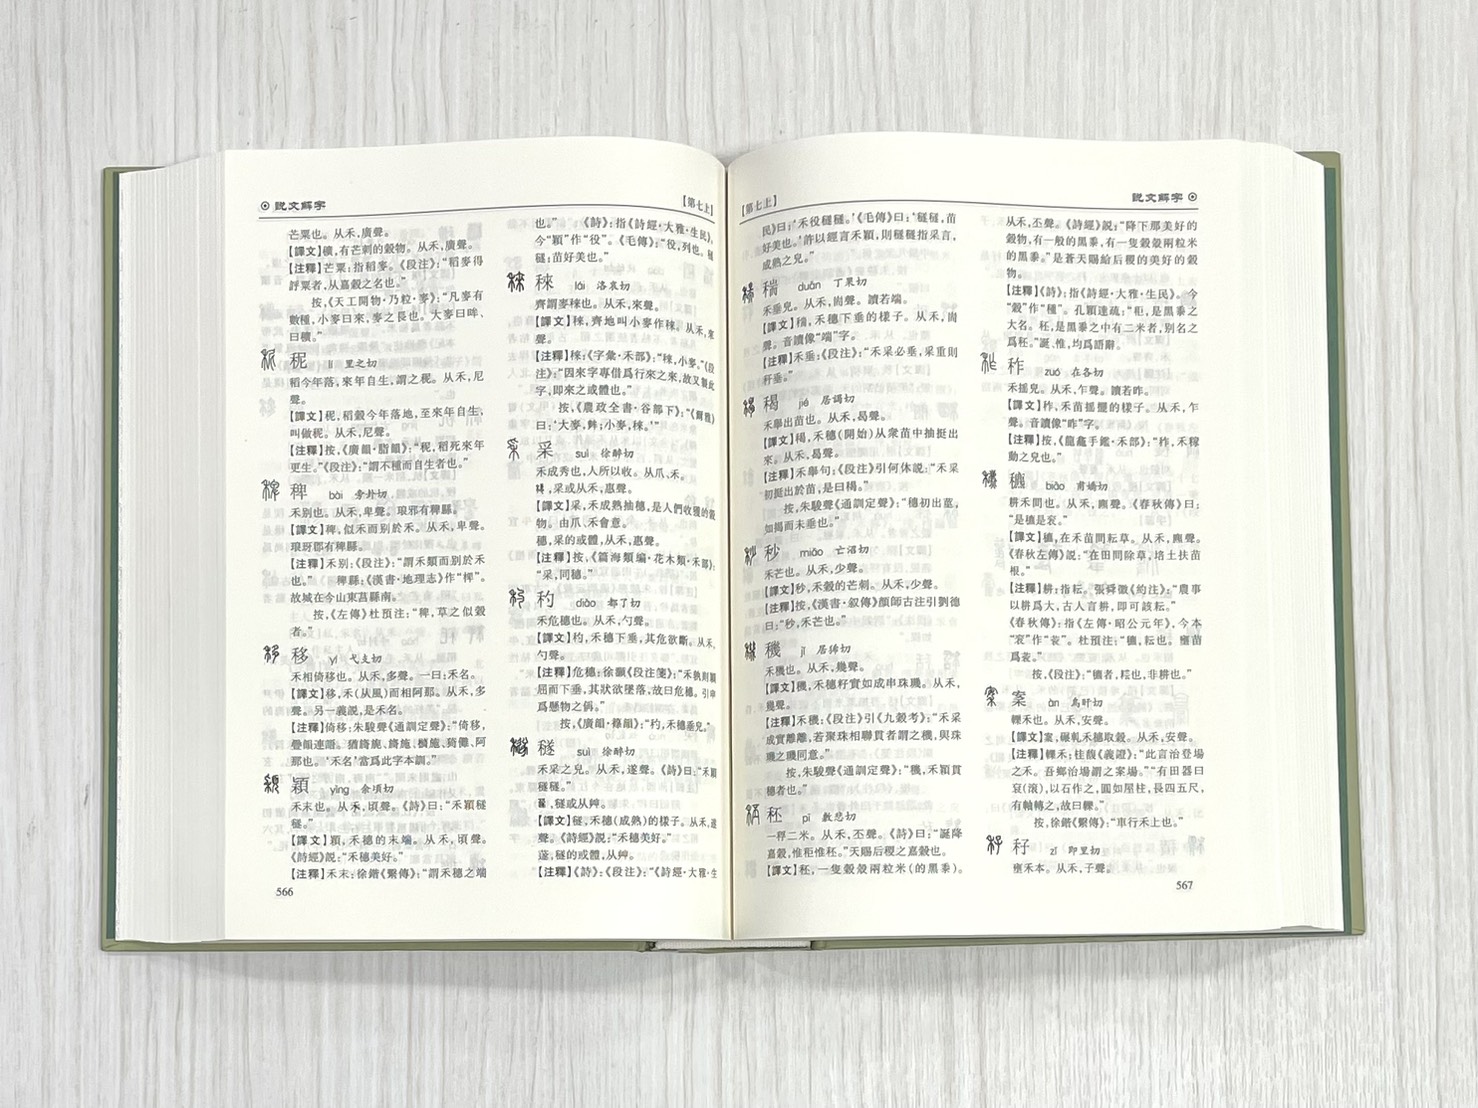 ⊙ 説文解字
【第七上】
芒粟也。从禾，廣聲。
【譯文】穬，有芒刺的穀物。从禾，廣聲。
【注釋】芒粟：指稻麥。《段注》：“稻麥得
評粟者，从嘉穀之名也。”
按，《天工開物·乃粒·麥》：“凡麥有
數種，小麥曰來，麥之長也。大麥曰牟、
曰穬。”
秜 lí 里之切
稻今年落，來年自生，謂之秜。从禾，尼
聲。
【譯文】秜，稻穀今年落地，至來年自生，
叫做秜。从禾，尼聲。
【注釋】按，《廣韻·脂韻》：“秜，稻死來年
更生。”《段注》：“謂不種而自生者也。”
稗 bài 旁卦切
禾別也。从禾，卑聲。琅邪有稗縣。
【譯文】稗，似禾而別於禾。从禾，卑聲。
琅玡郡有稗縣。
【注釋】禾別：《段注》：“謂禾類而別於禾
也。” 稗縣：《漢書·地理志》作“椑”。
故城在今山東莒縣南。
按，《左傳》杜預注：“稗，草之似穀
者。”
移 yí 弋支切
禾相倚移也。从禾，多聲。一曰：禾名。
【譯文】移，禾（从風）而相阿那。从禾，多
聲。另一義說，是禾名。
【注釋】倚移：朱駿聲《通訓定聲》：“倚移，
疊韻連語。猶旖旎、旖施、檹施、猗儺、阿
那也。‘禾名’當爲此字本訓。”
穎 yǐng 余頃切
禾末也。从禾，頃聲。《詩》曰：“禾穎穟
穟。”
【譯文】穎，禾穗的末端。从禾，頃聲。
《詩經》說：“禾穗美好。”
【注釋】禾末：徐鍇《繫傳》：“謂禾穗之端
也。” 《詩》：指《詩經·大雅·生民》。
今“穎”作“役”。《毛傳》：“役，列也。穟
穟：苗好美也。”
秾 lái 洛哀切
齊謂麥秾也。从禾，來聲。
【譯文】秾，齊地叫小麥作秾。从禾，來
聲。
【注釋】秾：《字彙·禾部》：“秾，小麥。”《段
注》：“因來字專借爲行來之來，故又製此
字，即來之或體也。”
按，《農政全書·谷部下》：“《爾雅》
曰：‘大麥，麰；小麥，秾。’”
采 suì 徐醉切
禾成秀也，人所以收。从爪、禾。
穗，采或从禾，惠聲。
【譯文】采，禾成熟抽穗，是人們收穫的穀
物。由爪、禾會意。
穗，采的或體，从禾，惠聲。
【注釋】按，《篇海類編·花木類·禾部》：
“采，同穗。”
𥝖 diǎo 都了切
禾危穗也。从禾，勺聲。
【譯文】𥝖，禾穗下垂，其危欲斷。从禾，
勺聲。
【注釋】危穗：徐灝《段注箋》：“禾孰則穎
屈而下垂，其狀欲墜落，故曰危穗。引申
爲懸物之偁。”
按，《廣韻·篠韻》：“𥝖，禾穗垂皃。”
穟 suì 徐醉切
禾采之皃。从禾，遂聲。《詩》曰：“禾穎
穟穟。”
䔹，穟或从艸。
【譯文】穟，禾穗（成熟）的樣子。从禾，遂
聲。《詩經》說：“禾穗美好。”
䔹，穟的或體，从艸。
【注釋】《詩》：《段注》：“《詩經·大雅·生
566
【第七上】
説文解字 ⊙
民》曰：‘禾役穟穟。’《毛傳》曰：‘穟穟，苗
好美也。’許以經言禾穎，則穟穟指采言，
成孰之皃。”
䅔 duǎn 丁果切
禾垂皃。从禾，耑聲。讀若端。
【譯文】䅔，禾穗下垂的樣子。从禾，耑
聲。音讀像“端”字。
【注釋】禾垂：《段注》：“禾采必垂，采重則
秆垂。”
稭 jié 居謁切
禾舉出苗也。从禾，曷聲。
【譯文】䅥，禾穗（開始）从衆苗中抽挺出
來。从禾，曷聲。
【注釋】禾舉句：《段注》引何休說：“禾采
初挺出於苗，是曰䅥。”
按，朱駿聲《通訓定聲》：“穗初出莖，
如揭而未垂也。”
秒 miǎo 亡沼切
禾芒也。从禾，少聲。
【譯文】秒，禾穀的芒刺。从禾，少聲。
【注釋】按，《漢書·叙傳》顏師古注引劉德
曰：“秒，禾芒也。”
機 jī 居狶切
禾機也。从禾，幾聲。
【譯文】機，禾穗籽實如成串珠璣。从禾，
幾聲。
【注釋】禾機：《段注》引《九穀考》：“禾采
成實離離，若聚珠相聯貫者謂之機，與珠
璣之璣同意。”
按，朱駿聲《通訓定聲》：“機，禾穎貫
穗者也。”
秠 pī 敷悲切
一稃二米。从禾，丕聲。《詩》曰：“誕降
嘉穀，惟秬惟秠。”天賜后稷之嘉穀也。
【譯文】秠，一隻穀殼兩粒米（的黑黍）。
从禾，丕聲。《詩經》說：“降下那美好的
穀物，有一般的黑黍，有一隻穀殼兩粒米
的黑黍。”是蒼天賜給后稷的美好的穀
物。
【注釋】《詩》：指《詩經·大雅·生民》。今
“穀”作“種”。孔穎達疏：“秬，是黑黍之
大名。秠，是黑黍之中有二米者，別名之
爲秠。”誕、惟，均爲語辭。
秨 zuó 在各切
禾摇皃。从禾，乍聲。讀若昨。
【譯文】秨，禾苗摇擺的樣子。从禾，乍
聲。音讀像“昨”字。
【注釋】按，《龍龕手鑑·禾部》：“秨，禾稼
動之皃也。”
穮 biāo 甫嬌切
耕禾間也。从禾，麃聲。《春秋傳》曰：
“是穮是衮。”
【譯文】穮，在禾苗間耘草。从禾，麃聲。
《春秋左傳》說：“在田間除草，培土扶苗
根。”
【注釋】耕：指耘。張舜徽《約注》：“農事
以耕爲大，古人言耕，即可該耘。”
《春秋傳》：指《左傳·昭公元年》。今本
“衮”作“蓘”。杜預注：“穮，耘也。壅苗
爲蓘。”
按，《段注》：“穮者，耘也，非耕也。”
案 àn 烏旰切
轢禾也。从禾，安聲。
【譯文】案，碾軋禾穗取穀。从禾，安聲。
【注釋】轢禾：桂馥《義證》：“此言治登場
之禾。吾鄉治場謂之案場。”“有田器曰
衮（滾），以石作之，圓如屋柱，長四五尺，
有軸轉之，故曰轢。”
按，徐鍇《繫傳》：“車行禾上也。”
秄 zǐ 即里切
壅禾本。从禾，子聲。
567